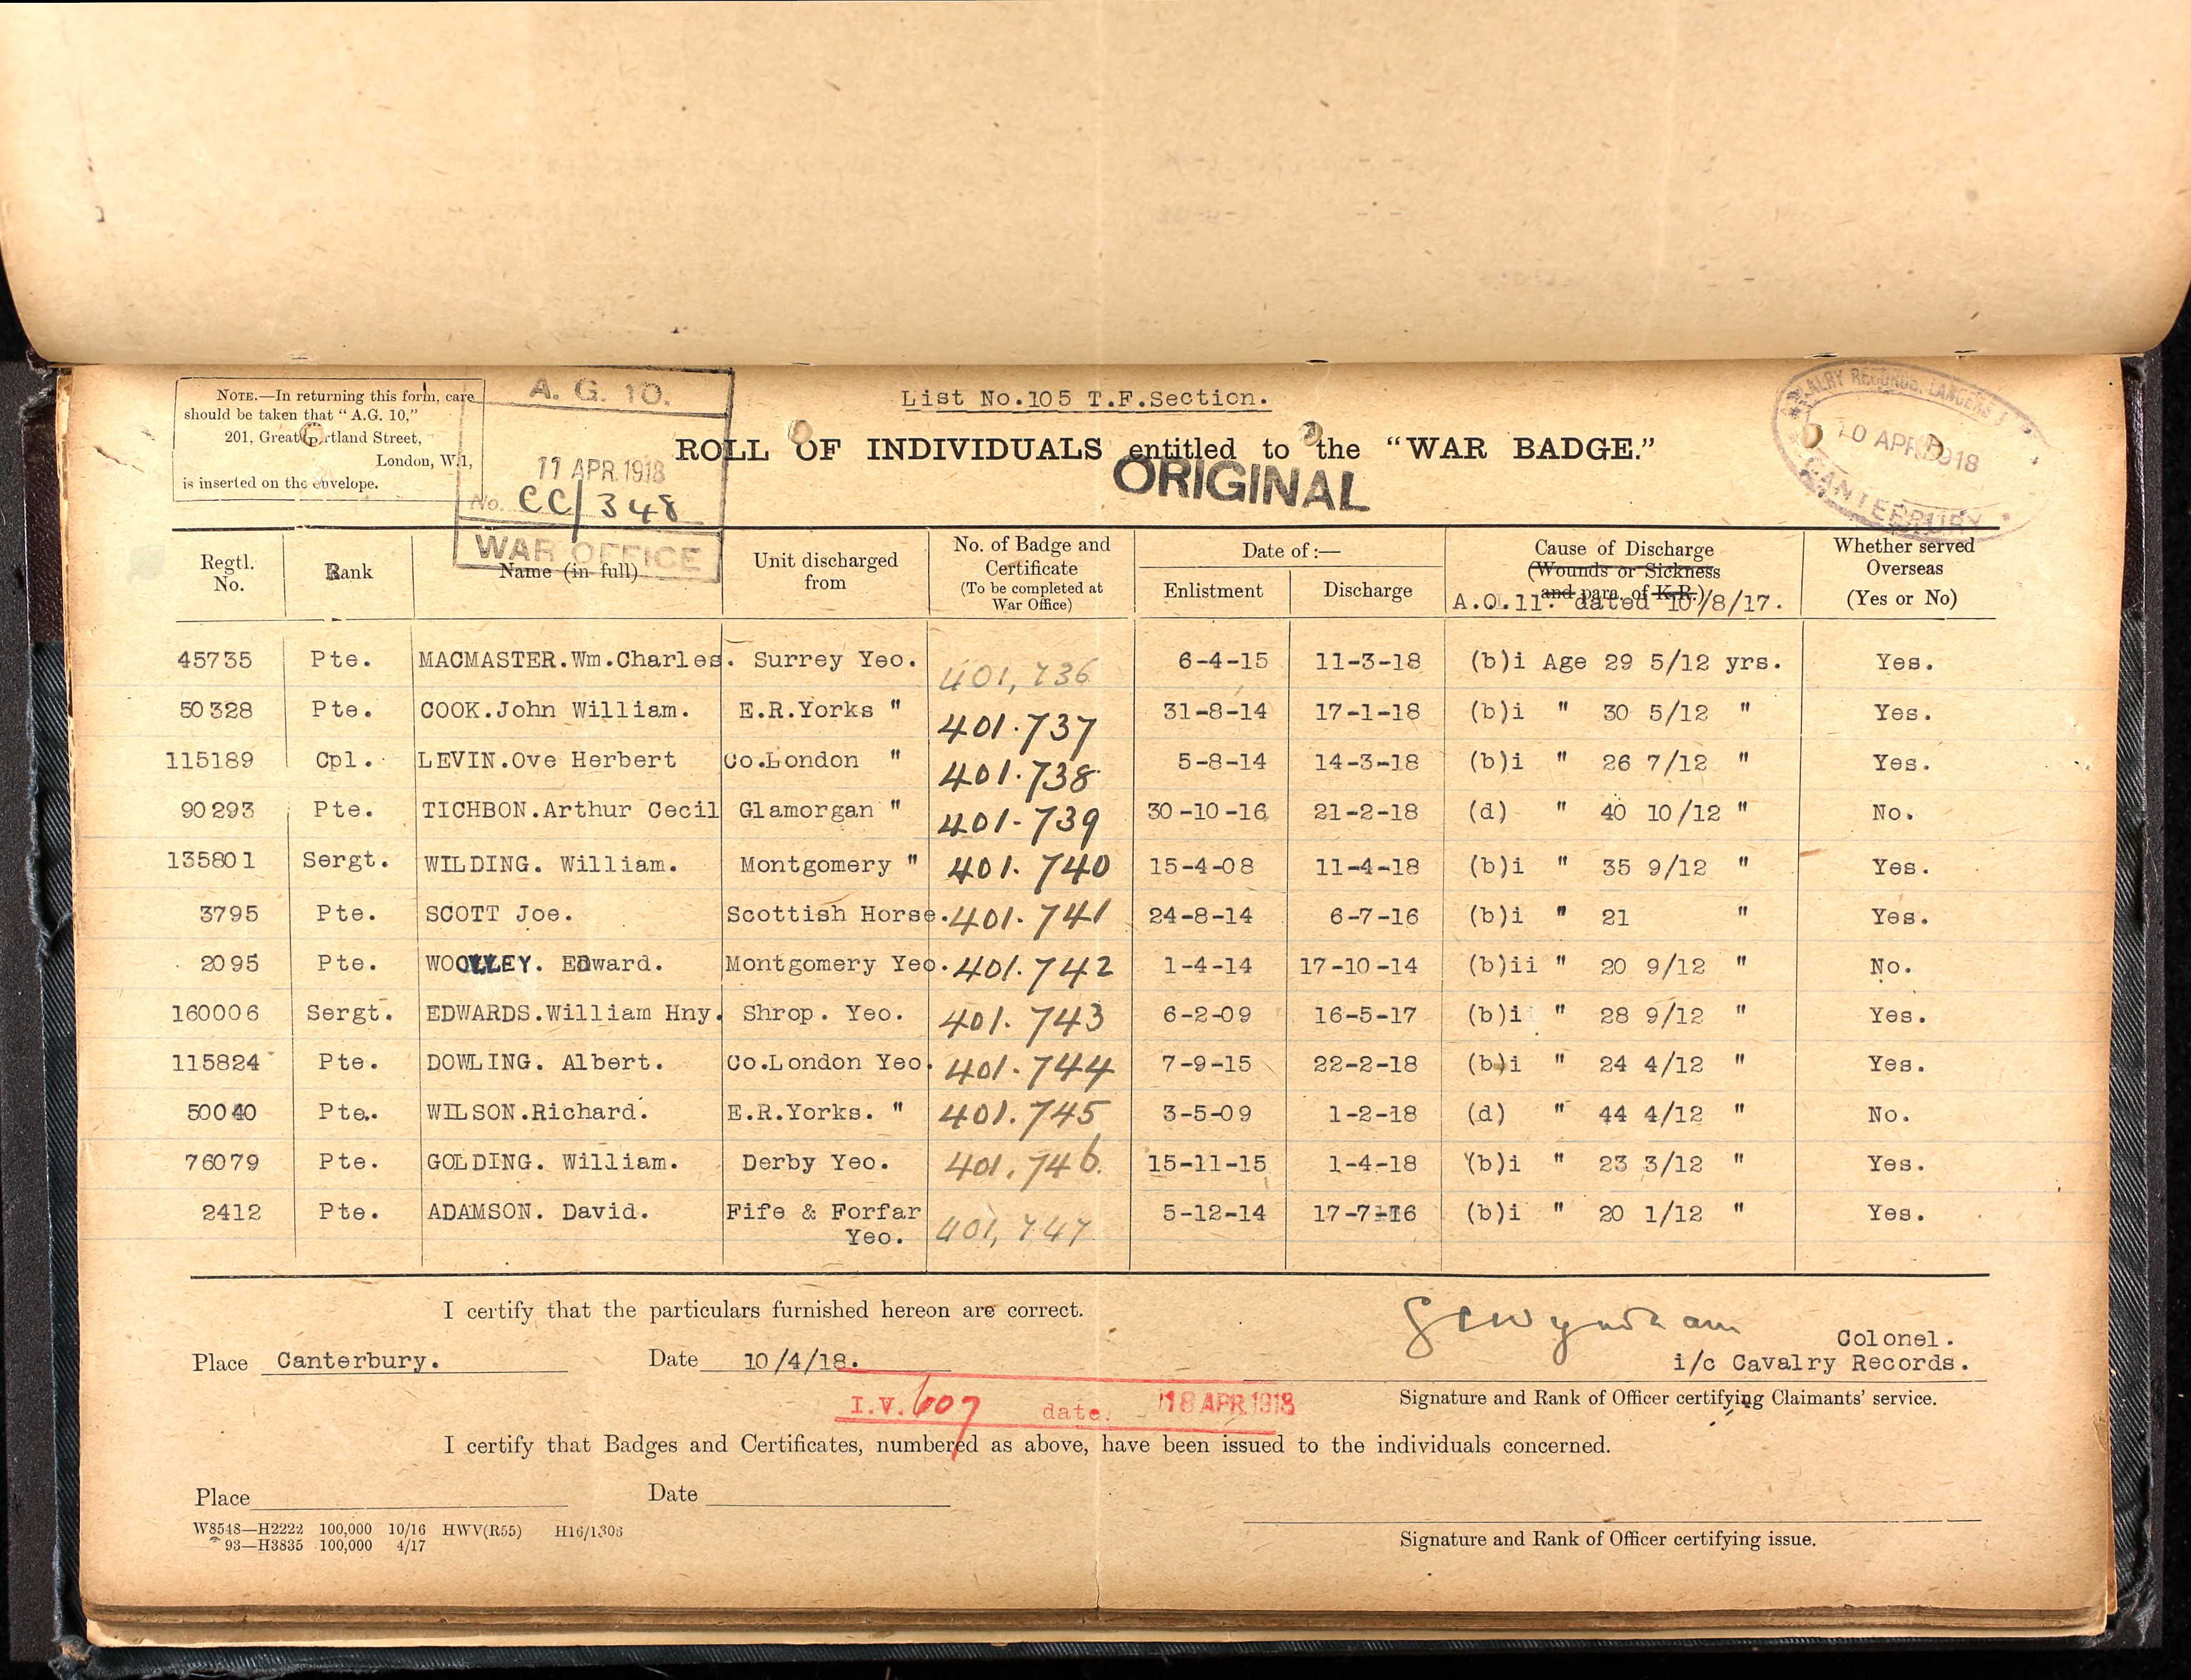 NOTE.—In returning this form, care
should be taken that “ A.G. 10,”
201, Great Portland Street,
London, W.1,
is inserted on the envelope.
A. G. 10.
11 APR. 1918
No. CC/348
WAR OFFICE
List No.105 T.F.Section.
ROLL OF INDIVIDUALS entitled to the “WAR BADGE.”
ORIGINAL
CAVALRY RECORDS, LANCERS
10 APR 1918
CANTERBURY
Regtl. No. Rank Name (in full) Unit discharged from No. of Badge and Certificate (To be completed at War Office) Date of :— Enlistment Discharge Cause of Discharge (Wounds or Sickness and para. of K.R.) A.O.11. dated 10/8/17. Whether served Overseas (Yes or No)
45735 Pte. MACMASTER.Wm.Charles. Surrey Yeo. 401,736 6-4-15 11-3-18 (b)i Age 29 5/12 yrs. Yes.
50328 Pte. COOK.John William. E.R.Yorks " 401.737 31-8-14 17-1-18 (b)i " 30 5/12 " Yes.
115189 Cpl. LEVIN.Ove Herbert Co.London " 401.738 5-8-14 14-3-18 (b)i " 26 7/12 " Yes.
90293 Pte. TICHBON.Arthur Cecil Glamorgan " 401-739 30-10-16 21-2-18 (d) " 40 10/12 " No.
135801 Sergt. WILDING. William. Montgomery " 401.740 15-4-08 11-4-18 (b)i " 35 9/12 " Yes.
3795 Pte. SCOTT Joe. Scottish Horse. 401.741 24-8-14 6-7-16 (b)i " 21 " Yes.
2095 Pte. WOOLLEY. Edward. Montgomery Yeo. 401.742 1-4-14 17-10-14 (b)ii " 20 9/12 " No.
160006 Sergt. EDWARDS.William Hny. Shrop. Yeo. 401.743 6-2-09 16-5-17 (b)i " 28 9/12 " Yes.
115824 Pte. DOWLING. Albert. Co.London Yeo. 401.744 7-9-15 22-2-18 (b)i " 24 4/12 " Yes.
50040 Pte. WILSON.Richard. E.R.Yorks. " 401.745 3-5-09 1-2-18 (d) " 44 4/12 " No.
76079 Pte. GOLDING. William. Derby Yeo. 401.746. 15-11-15 1-4-18 (b)i " 23 3/12 " Yes.
2412 Pte. ADAMSON. David. Fife & Forfar Yeo. 401,747 5-12-14 17-7-16 (b)i " 20 1/12 " Yes.
I certify that the particulars furnished hereon are correct.
Colonel.
Place Canterbury. Date 10/4/18. i/c Cavalry Records.
Signature and Rank of Officer certifying Claimants’ service.
I.V. 607 date. 18 APR. 1918
I certify that Badges and Certificates, numbered as above, have been issued to the individuals concerned.
Place Date
W8548—H2222 100,000 10/16 HWV(R55) H16/1306
93—H3835 100,000 4/17
Signature and Rank of Officer certifying issue.